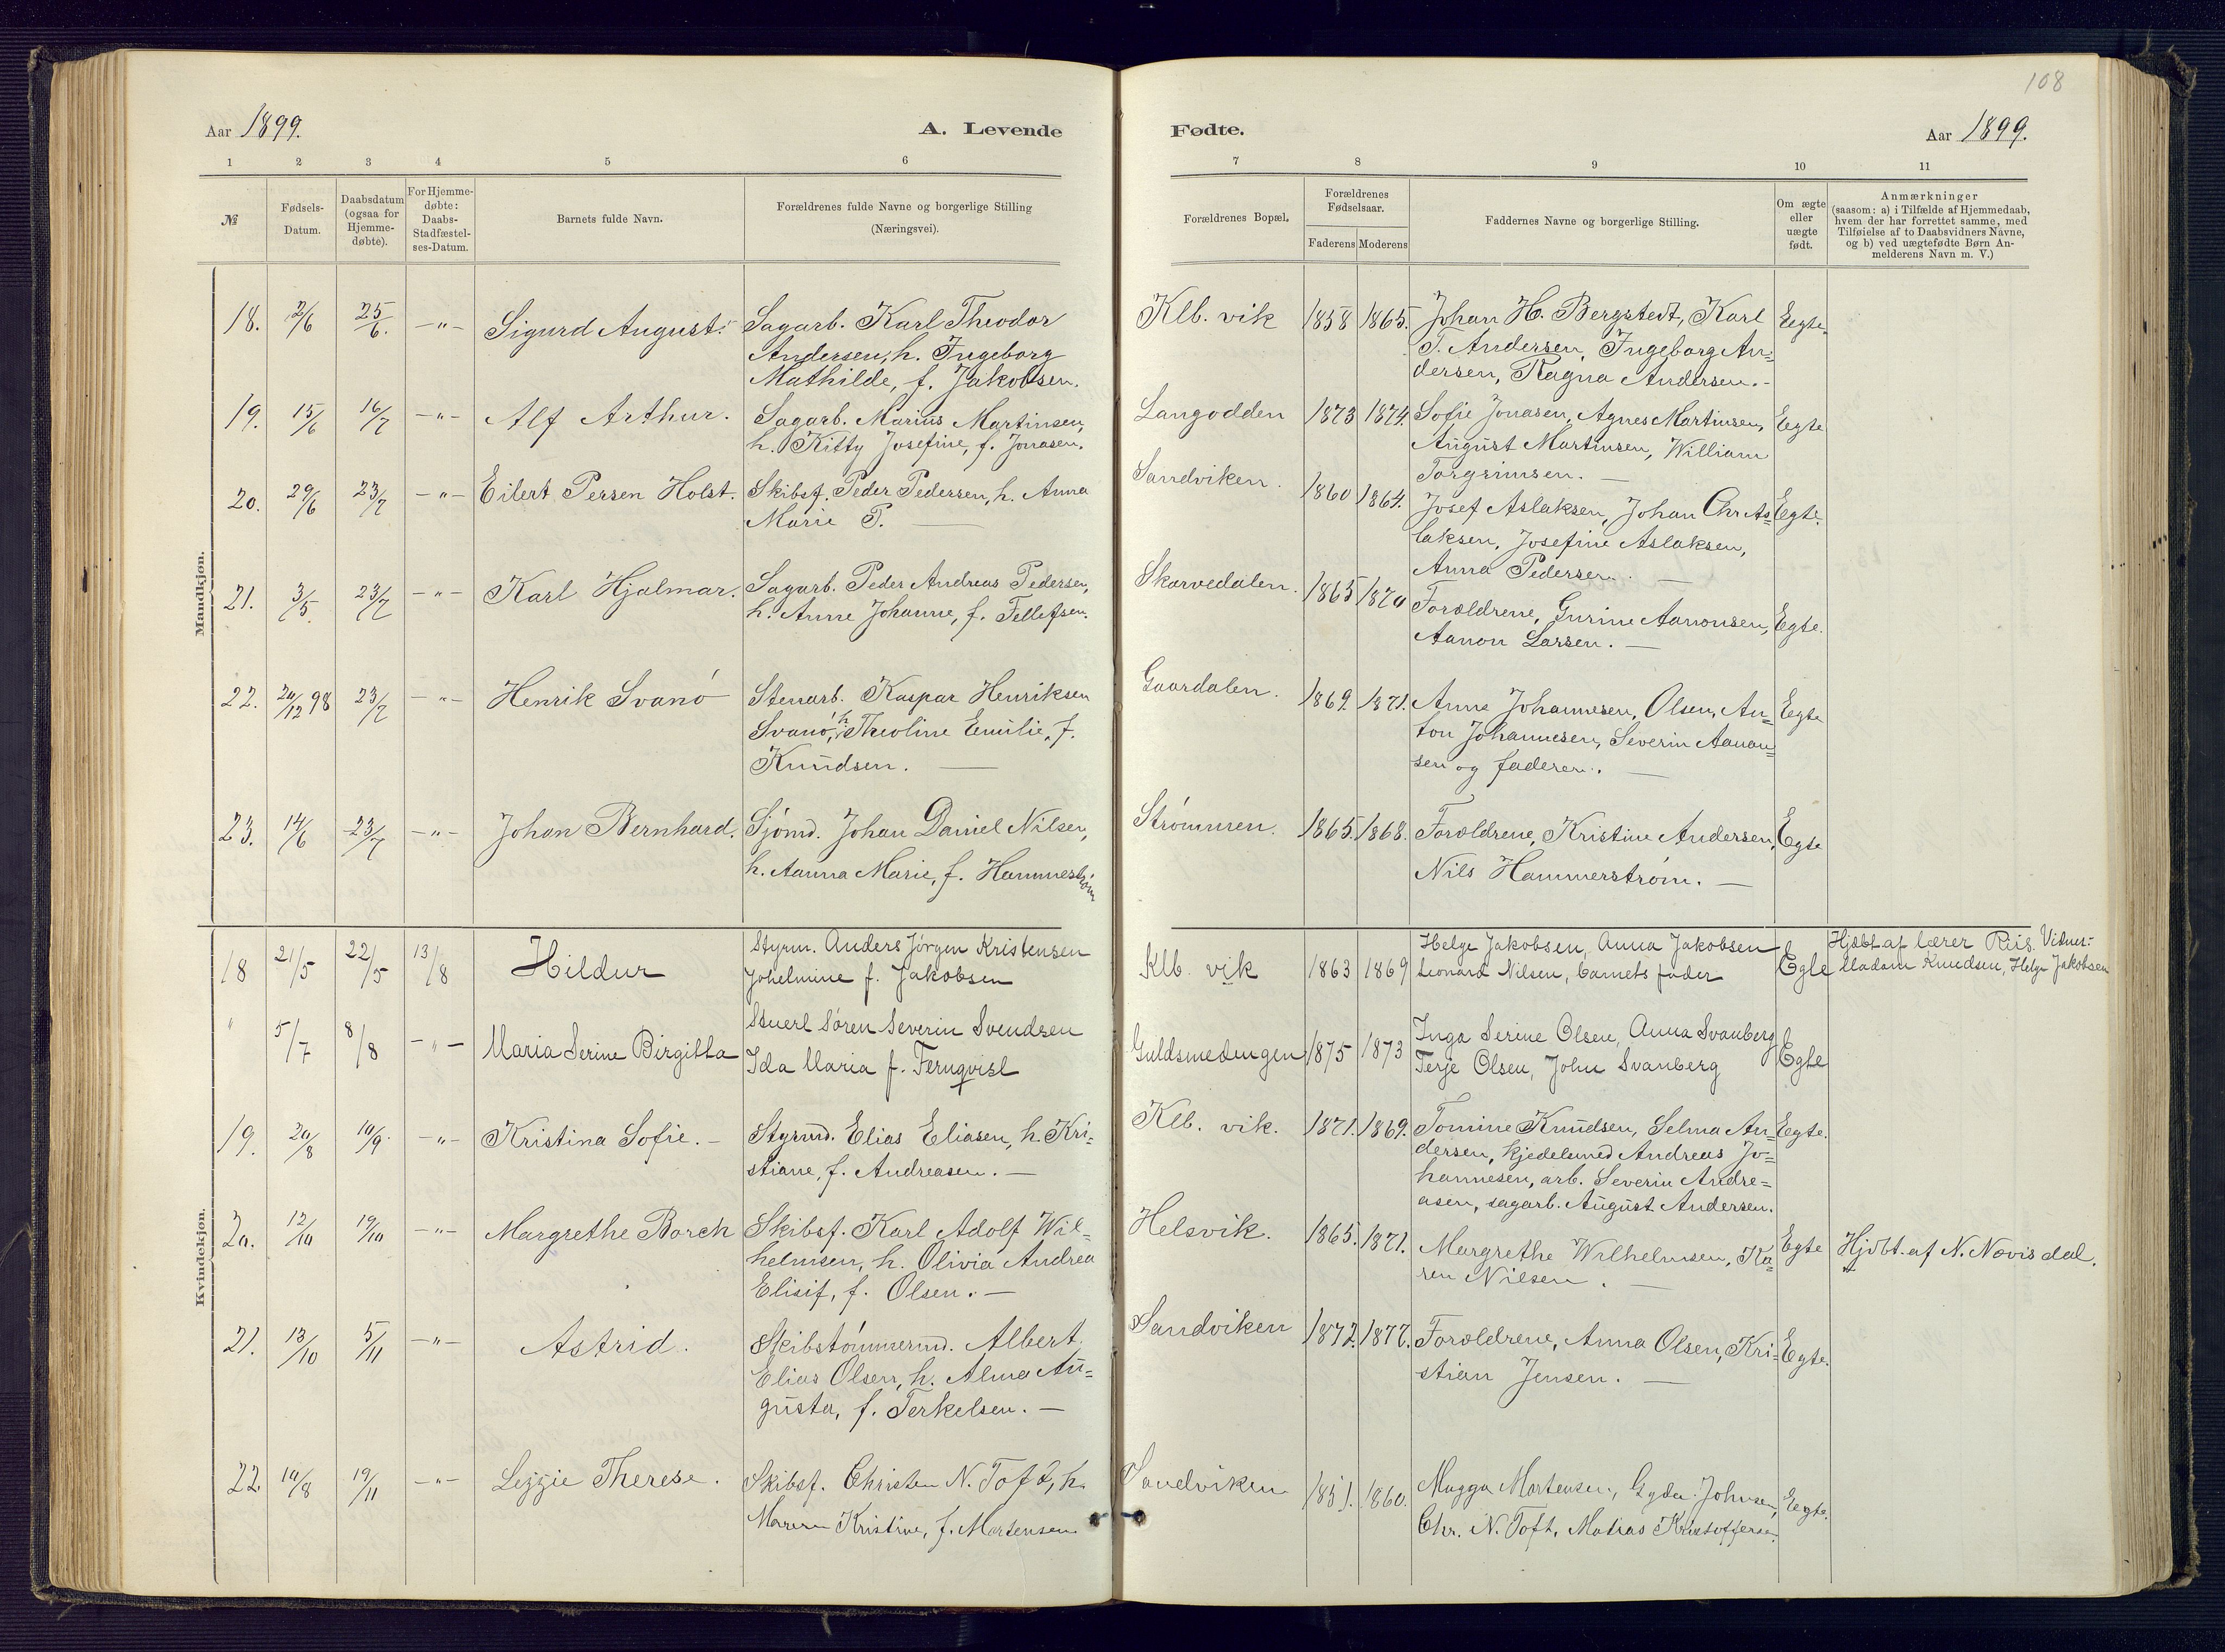 108
Aar 1899.
A. Levende
Fødte.
Aar 1899.
1 2 3 4 5 6
7 8 9 10 11
№
Fødsels-
Datum.
Daabsdatum
(ogsaa for
Hjemme-
døbte).
For Hjemme-
døbte:
Daabs-
Stadfæstel-
ses-Datum.
Barnets fulde Navn.
Forældrenes fulde Navne og borgerlige Stilling
(Næringsvei).
Forældrenes Bopæl.
Forældrenes
Fødselsaar.
Faderens Moderens
Faddernes Navne og borgerlige Stilling.
Om ægte
eller
uægte
født.
Anmærkninger
(saasom: a) i Tilfælde af Hjemmedaab,
hvem der har forrettet samme, med
Tilføielse af to Daabsvidners Navne,
og b) ved uægtefødte Børn An-
melderens Navn m. V.)
Mandkjøn.
18. 2/6 25/6. -"- Sigurd August.
Sagarb. Karl Theodor
Andersen, h. Ingeborg
Mathilde, f. Jakobsen.
Klb. vik 1858 1865.
Johan H. Bergstedt, Karl
T. Andersen, Ingeborg An=
dersen, Ragna Andersen.-
Egte.
19. 15/6 16/7 -"- Alf Arthur.
Sagarb. Marius Martinsen,
h. Kitty Josefine, f. Jonasen.
Langodden 1873 1874.
Sofie Jonasen, Agnes Martinsen,
August Martinsen, William
Torgrimsen. —
Egte
20. 29/6 23/7 -"- Eilert Persen Holst.
Skibsf. Peder Pedersen, h. Anna
Marie P. —
Sandviken. 1860 1864.
Josef Aslaksen, Johan Chr. As=
laksen, Josefine Aslaksen,
Anna Pedersen. —
Egte.
21. 3/5. 23/7 -"- Karl Hjalmar.
Sagarb. Peder Andreas Pedersen,
h. Anne Johanne, f. Tellefsen.
Skarvedalen. 1865 1870
Forældrene, Gurine Aanonsen,
Aanon Larsen. —
Egte.
22. 20/12 98 23/7 -"- Henrik Svanø
Stenarb. Kaspar Henriksen
Svanø, h. Theoline Emilie, f.
Knudsen. —
Gaardalen. 1869. 1871.
Anne Johannesen, Olsen, An=
ton Johannesen, Severin Aanon=
sen og faderen. —
Egte
23. 14/6 23/7 -"- Johan Bernhard.
Sjømd. Johan Daniel Nilsen,
h. Aanna Marie, f. Hammerstrøm
Strømmen. 1865. 1868.
Forældrene, Kristine Andersen,
Nils Hammerstrøm. —
Egte
Kvindekjøn.
18 21/5 22/5 13/8 Hildur
Styrm. Anders Jørgen Kristensen
Johelmine f. Jakobsen
Klb. vik 1863 1869
Helge Jakobsen, Anna Jakobsen
Leonard Nilsen, barnets fader
Egte
Hjdbt af lærer Riis. Vidner:
Madam Knudsen, Helge Jakobsen
" 5/7 8/8 -"- Maria Serine Birgitta
Stuerl Søren Severin Svendsen
Ida Maria f. Fernqvist
Guldsmedengen 1875 1873
Inga Serine Olsen, Anna Svanberg
Terje Olsen, John Svanberg
Egte
19. 20/8 10/9. -"- Kristina Sofie. -
Styrmd. Elias Eliasen, h. Kri-
stiane, f. Andreasen. —
Klb. vik. 1871. 1869.
Tomine Knudsen, Selma An=
dersen, kjedelsmed Andreas Jo=
hannesen, arb. Severin Andre=
asen, sagarb. August Andersen.
Egte.
20. 12/10 19/10 -"- Margrethe Borch
Skibsf. Karl Adolf Wil=
helmsen, h. Olivia Andrea
Elisif, f. Olsen. —
Helsvik. 1865. 1871.
Margrethe Wilhelmsen, Ka=
ren Nilsen.
Egte
Hjdbt. af N. Nævisdal.
21. 13/10 5/11 -"- Astrid.
Skibstømmermd. Albert
Elias Olsen, h. Alma Au=
gusta, f. Terkelsen. —
Sandviken 1872. 1877.
Forældrene, Anna Olsen, Kri-
stian Jensen. —
Egte.
22. 10/8 19/11 -"- Lezzie Therese.
Skibsf. Christen N. Toft, h.
Maren Kristine, f. Mortensen
Sandviken 1851. 1860.
Magga Mortensen, Gyda Johnsen,
Chr. N. Toft, Matias Kristoffersen.
Egte.